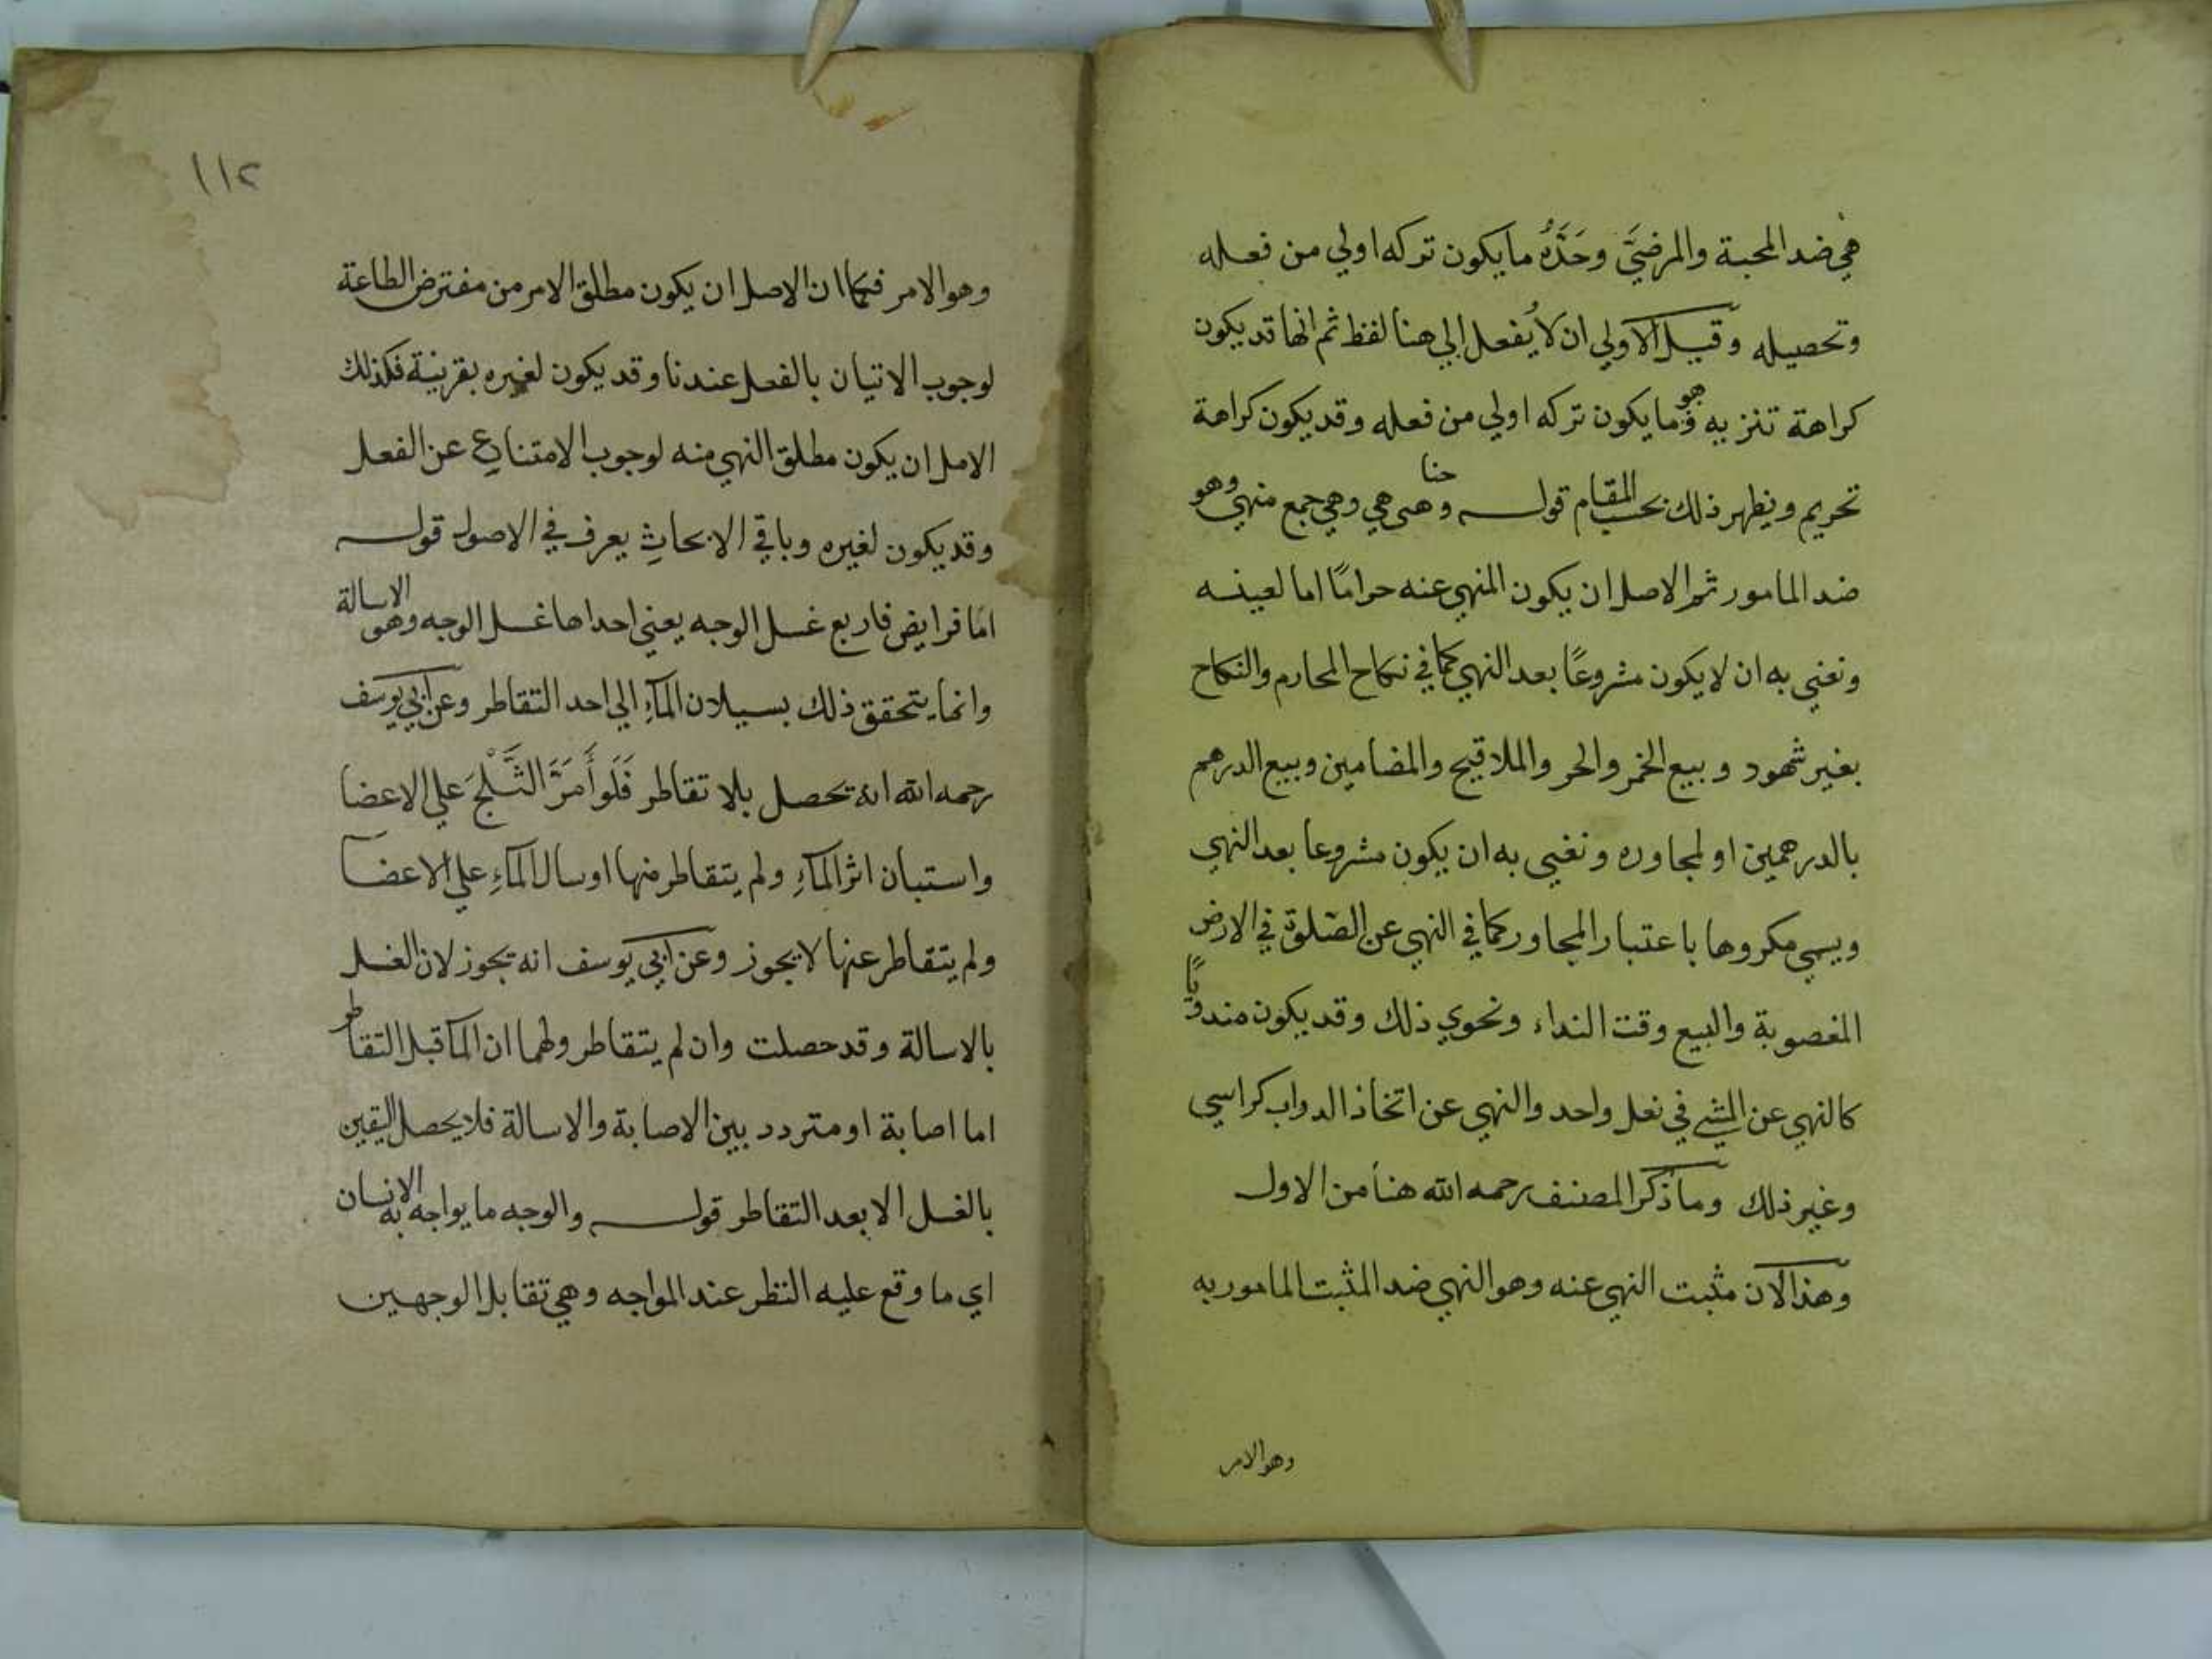 هي ضد المحبة والمرضيَّ وحَدُّهُ ما يكون تركه اولي من فعله
وتحصيله وقيل الاولي ان لا يُفعل الي هنا لفظ ثم انها قد يكون
كراهة تنزيه وهو ما يكون تركه اولي من فعله وقد يكون كراهة
تحريم ويظهر ذلك بحسب المقام قوله ومناهي وهي جمع منهي وهو
ضد المامور ثم الاصل ان يكون المنهي عنه حرامًا اما لعينه
ونعني به ان لا يكون مشروعًا بعد النهي كما في نكاح المحارم والنكاح
بغير شهود وبيع الخمر والحر والملاقيح والمضامين وبيع الدرهم
بالدرهمين او لمجاوره ونعني به ان يكون مشروعا بعد النهي
ويسمي مكروها باعتبار المجاور كما في النهي عن الصلوة في الارض
المغصوبة والبيع وقت النداء ونحوي ذلك وقد يكون مندوبًا
كالنهي عن المشي في نعل واحد والنهي عن اتخاذ الدواب كراسي
وغير ذلك وما ذكر المصنف رحمه الله هنا من الاول
وهذا لان مثبت النهي عنه وهو النهي ضد المثبت المامور به
وهو الامر
١١٢
وهو الامر فكما ان الاصل ان يكون مطلق الامر من مفترض الطاعة
لوجوب الاتيان بالفعل عندنا وقد يكون لغيره بقرينة فكذلك
الامل ان يكون مطلق النهي منه لوجوب الامتناع عن الفعل
وقد يكون لغيره وباقي الابحاث يعرف في الاصول قوله
اما فرايض فاربع غسل الوجه يعني احداها غسل الوجه وهو الاسالة
وانما يتحقق ذلك بسيلان المآءِ الي احد التقاطر وعن ابي يوسف
رحمه الله انه يحصل بلا تقاطر فَلَو أَمَرَّ الثَّلْجَ علي الاعضا
واستبان اثر المآءِ ولم يتقاطر منها او سال المآءِ علي الاعضا
ولم يتقاطر عنها لا يجوز وعن ابي يوسف انه يجوز لان الغسل
بالاسالة وقد حصلت وان لم يتقاطر ولهما ان المآ قبل التقاطر
اما اصابة او متردد بين الاصابة والاسالة فلا يحصل اليقين
بالغسل الا بعد التقاطر قوله والوجه ما يواجه به الانسان
اي ما وقع عليه النظر عند المواجه وهي تقابل الوجهين